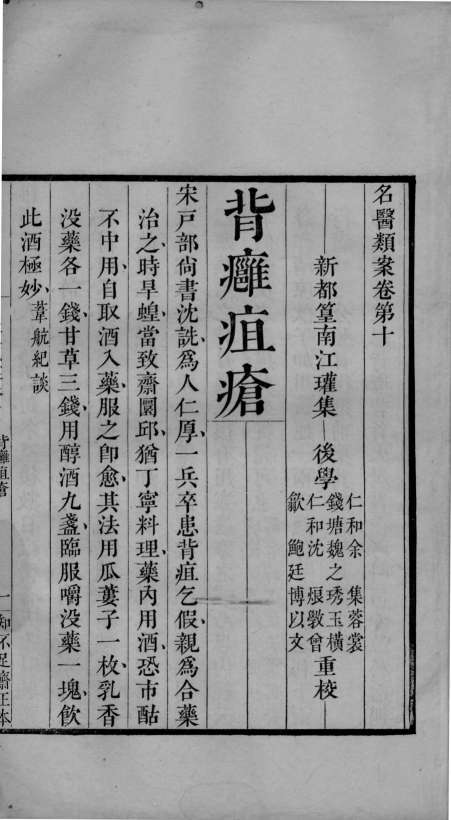 名醫類案卷第十
新都篁南江瓘集 後學
仁和余 集蓉裳
錢塘魏之琇玉橫
仁和沈 烺敦曾
歙 鮑廷博以文
重校
背癰疽瘡
宋戸部尚書沈詵爲人仁厚一兵卒患背疽乞假親爲合藥
治之時旱蝗當致齋圜邱猶丁寧料理藥內用酒恐市酤
不中用自取酒入藥服之卽愈其法用瓜蔞子一枚乳香
没藥各一錢甘草三錢用醇酒九盞臨服嚼没藥一塊飲
此酒極妙葦航紀談
背癰疽瘡
一
知不足齋正本